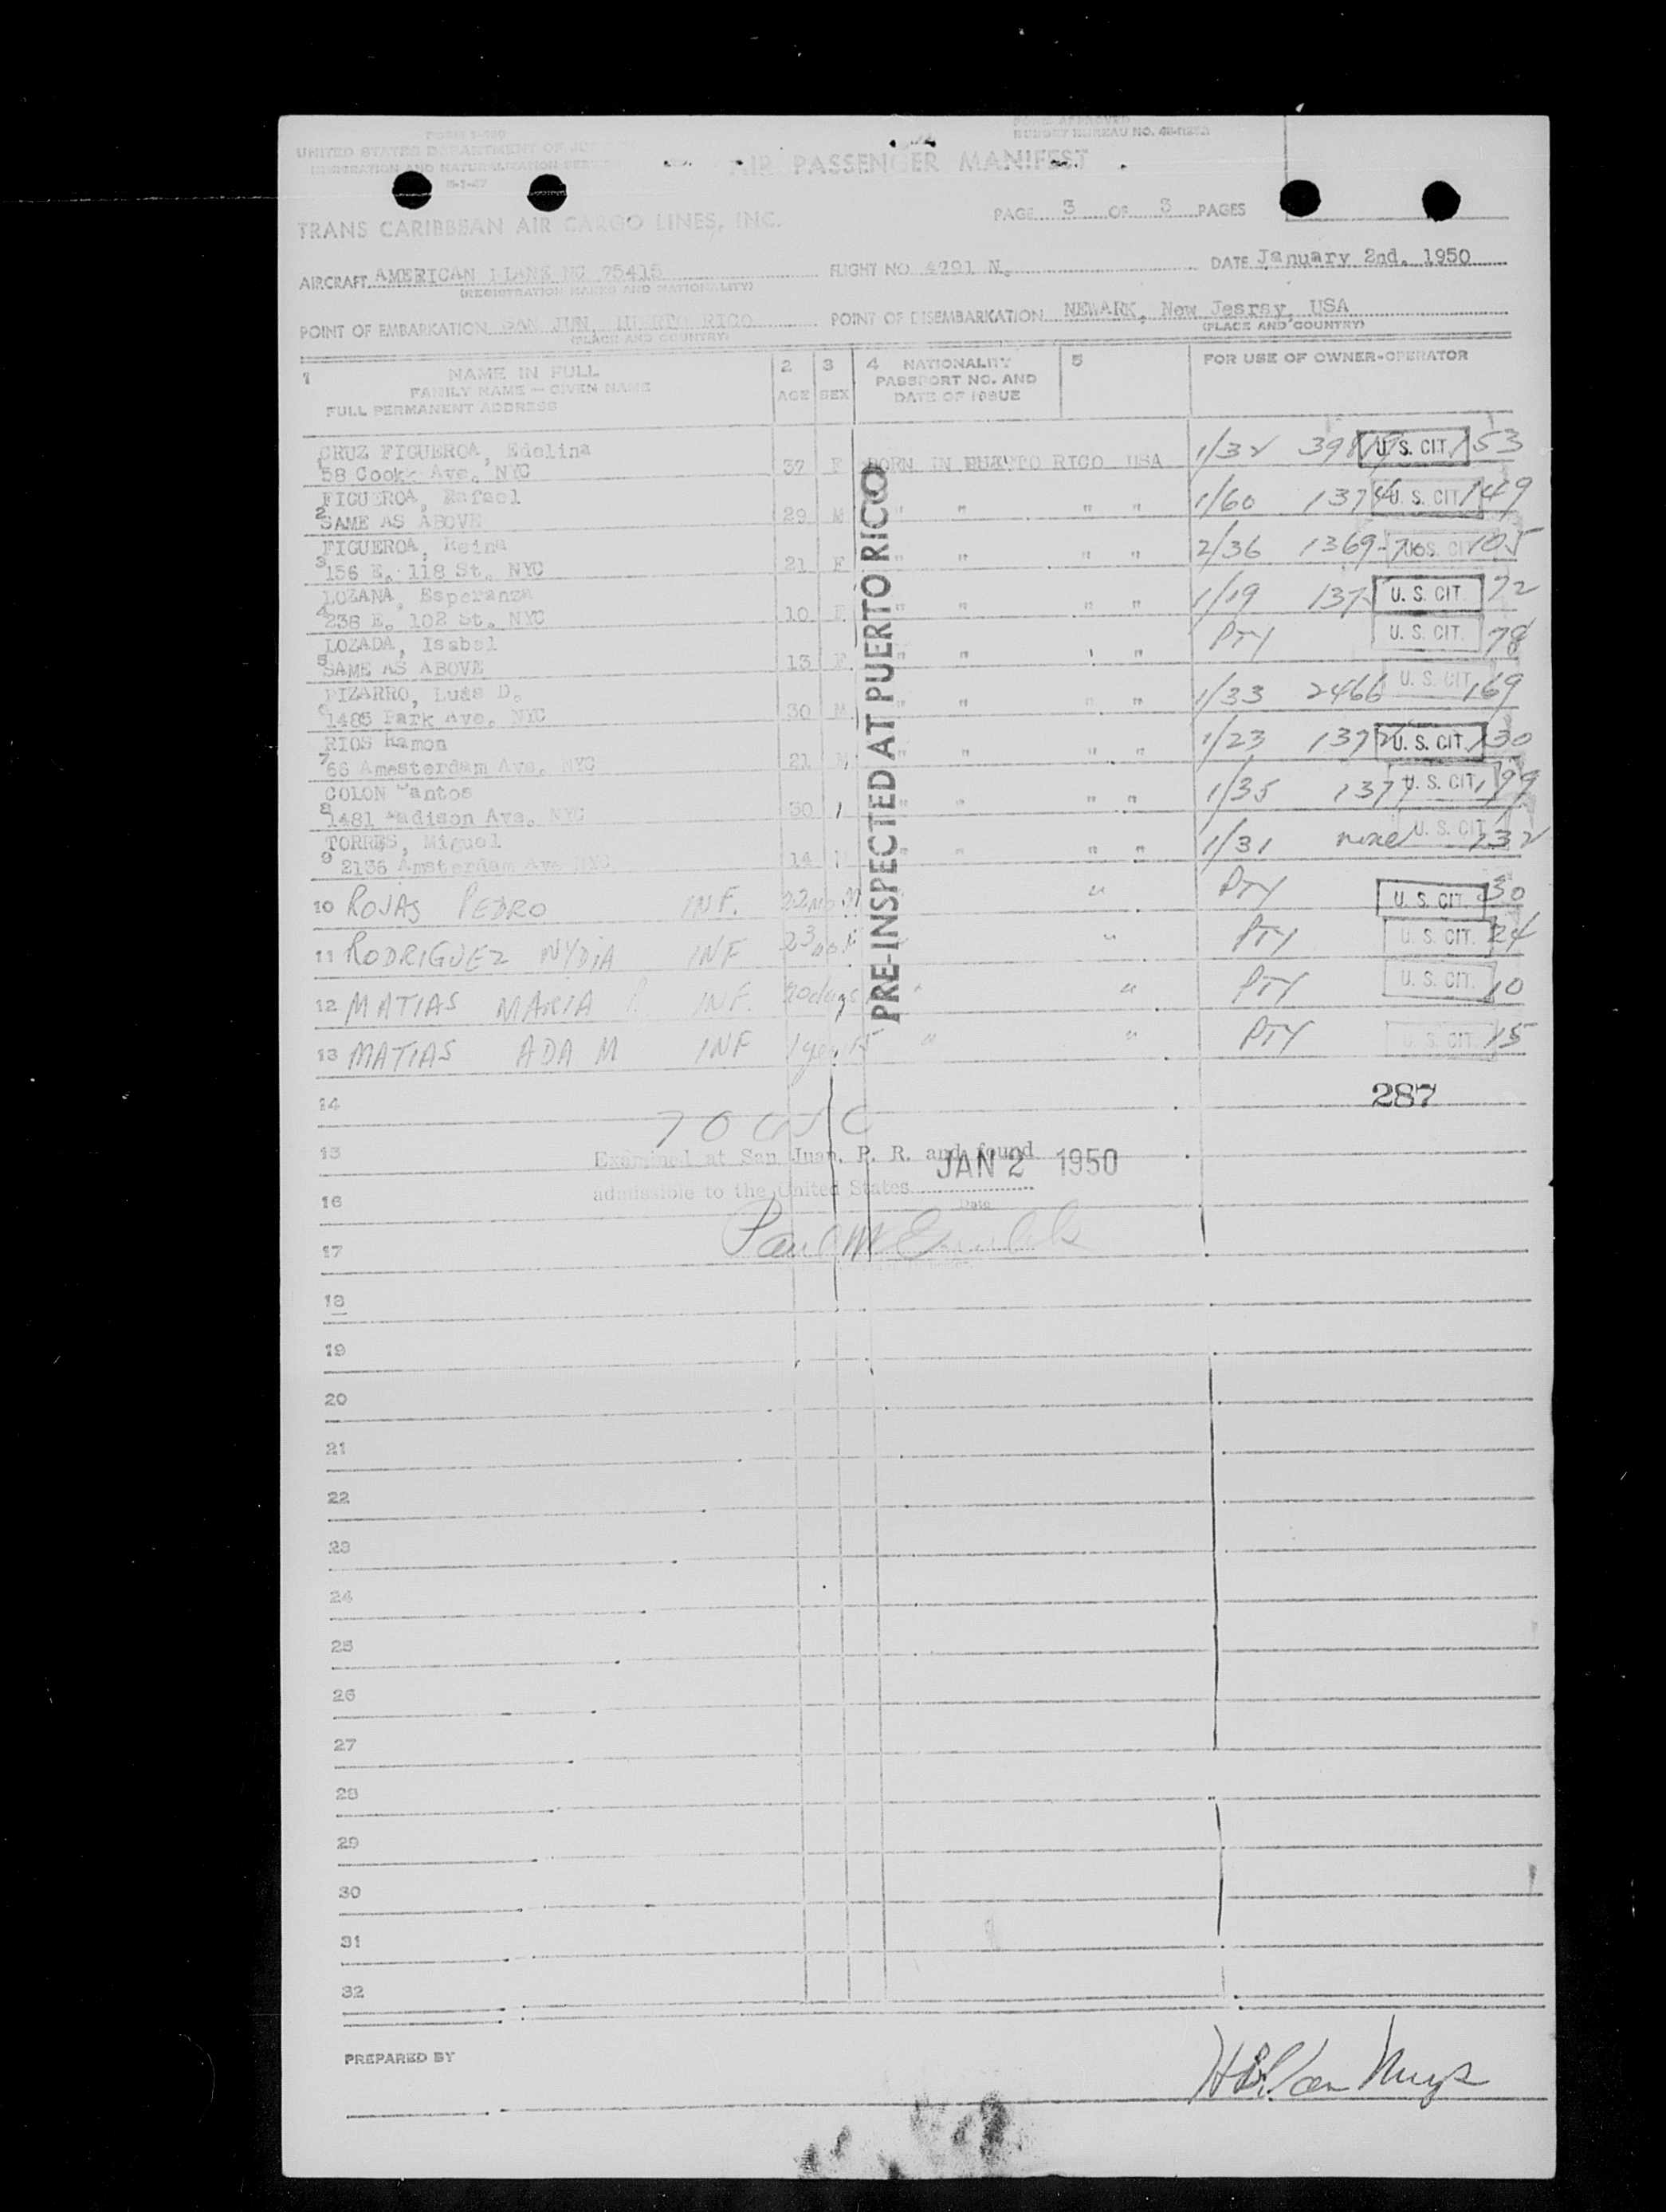 UNITED STATES DEPARTMENT OF
IMMIGRATION AND NATURALIZATION
FORM APPROVED
BUDGET BUREAU NO.
AIR PASSENGER MANIFEST
TRANS CARIBBEAN AIR CARGO LINES, INC.
PAGE 3 OF 3 PAGES
AIRCRAFT AMERICAN NC 75415 FLIGHT NO 4291 N. DATE January 2nd. 1950
(REGISTRATION MARKS AND NATIONALITY)
POINT OF EMBARKATION SAN JUN, PUERTO RICO POINT OF DISEMBARKATION NEWARK, New Jesrsy, USA
(PLACE AND COUNTRY) (PLACE AND COUNTRY)
1 NAME IN FULL 2 3 4 NATIONALITY 5 FOR USE OF OWNER-OPERATOR
FAMILY NAME — GIVEN NAME AGE SEX PASSPORT NO. AND
FULL PERMANENT ADDRESS DATE OF ISSUE
CRUZ FIGUEROA, Edelina
1 58 Cook Ave. NYC 37 F BORN IN PUERTO RICO USA 1/32 U. S. CIT. 153
FIGUEROA, Rafael
2 SAME AS ABOVE 29 M " " " " 1/60 U. S. CIT. 149
FIGUEROA, Reina
3 156 E. 118 St. NYC 21 F " " " " 2/36 1369-70 U. S. CIT. 105
LOZANA, Esperanza
4 238 E. 102 St. NYC 10 F " " " " 1/19 U. S. CIT. 72
LOZADA, Isabel
5 SAME AS ABOVE 13 F " " " PTY U. S. CIT. 78
PIZARRO, Luis D.
6 1485 Park Ave. NYC 30 M " " " " 1/33 2466 U. S. CIT. 169
RIOS Ramon
7 66 Amesterdam Ave. NYC 21 M " " " " 1/23 U. S. CIT. 130
COLON Santos
8 1481 Madison Ave. NYC 30 " " " " 1/35 U. S. CIT. 199
TORRES, Miguel
9 2136 Amsterdam Ave NYC 14 " " " " 1/31 none U. S. CIT. 132
10 ROJAS PEDRO INF. 22 mo M " PTY U. S. CIT. 30
11 RODRIGUEZ NYDIA INF 23 mo F " PTY U. S. CIT. 24
12 MATIAS MARIA INF. days " " PTY U. S. CIT. 10
13 MATIAS ADA M INF 1 year " " PTY U. S. CIT. 15
PRE-INSPECTED AT PUERTO RICO
14 287
70 USC
15 Examined at San Juan, P. R. and found
JAN 2 1950
16 admissible to the United States
Date
17 Paul
18
19
20
21
22
23
24
25
26
27
28
29
30
31
32
PREPARED BY